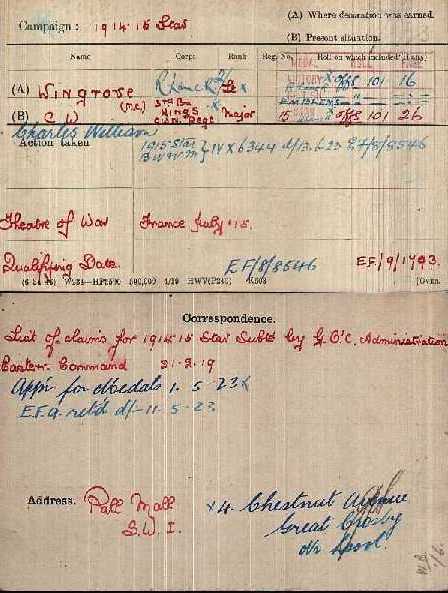 Campaign: 1914-15 Star
(A) Where decoration was earned.
(B) Present situation.
Name Corps Rank Reg. No. Roll on which included (if any).
(A) WINGROVE (M.C.)
VICTORY X OFFS 101 16
EMBLEMS
(B) C W KINGS Major 15 Star OFFS 101 26
Charles William
Action taken 1915 Star B.W. & V.M. } IV X 6344 d/13.6.23 E.F/8/8546
Theatre of War France July '15.
Qualifying Date. E.F/8/8546 E.F/9/1793
Correspondence.
List of claims for 1914-15 Star Subtd by G.O's C. Administration
Eastern Command 21-2-19
Appn for Medals 1.5.23 X
E.F.9. retd d/- 11.5.23
Address. Pall Mall
S.W.1.
X 4. Chestnut Avenue
Great Crosby
Nr Lpool.